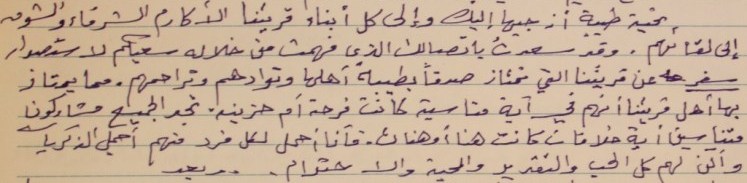 تحية طيبة أزجيها إليك وإلى كل أبناء قريتنا الأكارم الشرفاء والشوق
إلى لقائهم . وقد سعدت باتصالك الذي فهمت من خلاله سعيكم لاستصدار
سفر عن قريتنا التي تمتاز صدقاً بطيبة أهلها وتوادهم وتراحمهم . مما يمتاز
بها أهل قريتنا أنهم في أية مناسبة كانت فرحة أم حزينة . نجد الجميع مشاركون
متناسين أية خلافات كانت هنا أو هناك . فأنا أحمل لكل فرد منهم أجمل الذكريات
وأكن لهم كل الحب والتقدير والمحبة والاحترام . وبعد